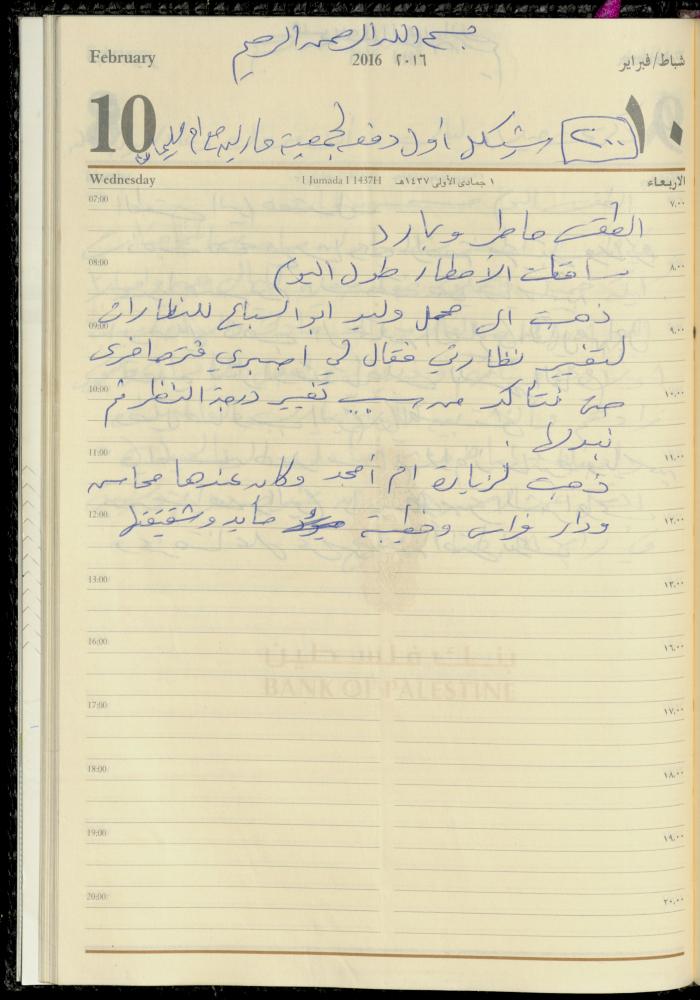 بسم الله الرحمن الرحيم
February 2016 ٢٠١٦ شباط/فبراير
10 ٢٠٠٠ شيكل اول دفعه لجمعية ١٠
Wednesday 1 Jumada I 1437H ١ جمادى الأولى ١٤٣٧هـ الاربعاء
07:00 ٧,٠٠
الطقس ماطر وبارد
08:00 ٨,٠٠
تساقطت الأمطار طول اليوم
ذهبت الى محل وليد ابو السباع للنظارات
09:00 ٩,٠٠
لتغيير نظارتي فقال لي اصبري فترة اخرى
10:00 ١٠,٠٠
حتى نتأكد من سبب تغيير درجة النظر ثم
نبدلها .
11:00 ١١,٠٠
ذهبت لزيارة ام أمجد وكان عندها محاسن
12:00 ١٢,٠٠
ودار فراس وخطيبة مايد وشقيقتها
13:00 ١٣,٠٠
16:00 ١٦,٠٠
بنك فلسطين
BANK OF PALESTINE
17:00 ١٧,٠٠
18:00 ١٨,٠٠
19:00 ١٩,٠٠
20:00 ٢٠,٠٠